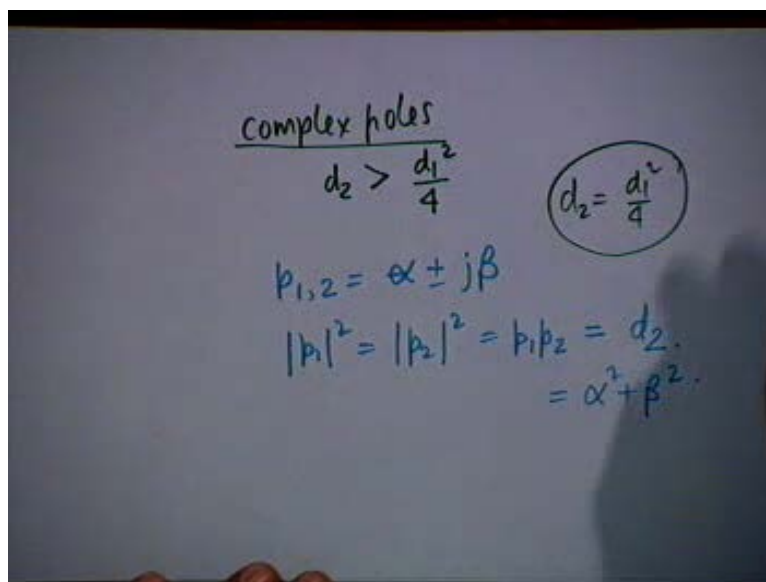 complex poles
d₂ > d₁²/4
d₂ = d₁²/4
p₁,₂ = α ± jβ
|p₁|² = |p₂|² = p₁p₂ = d₂.
= α² + β².